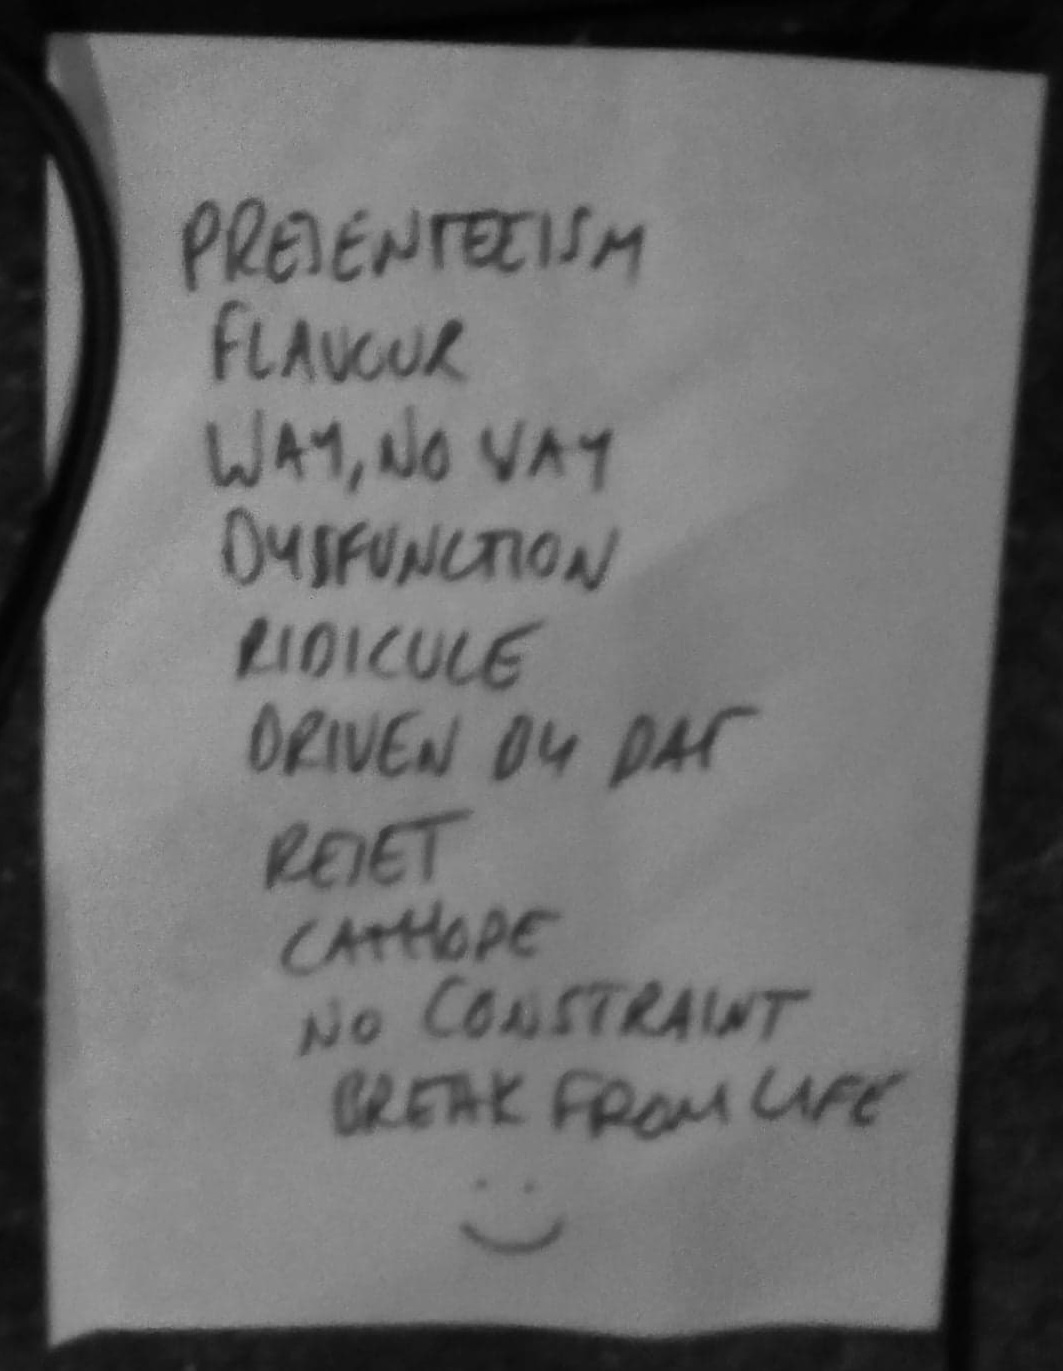 PRESENTEEISM
FLAVOUR
WAY, NO WAY
DYSFUNCTION
RIDICULE
DRIVEN BY DAT
RESET
CATHODE
NO CONSTRAINT
BREAK FROM LIFE